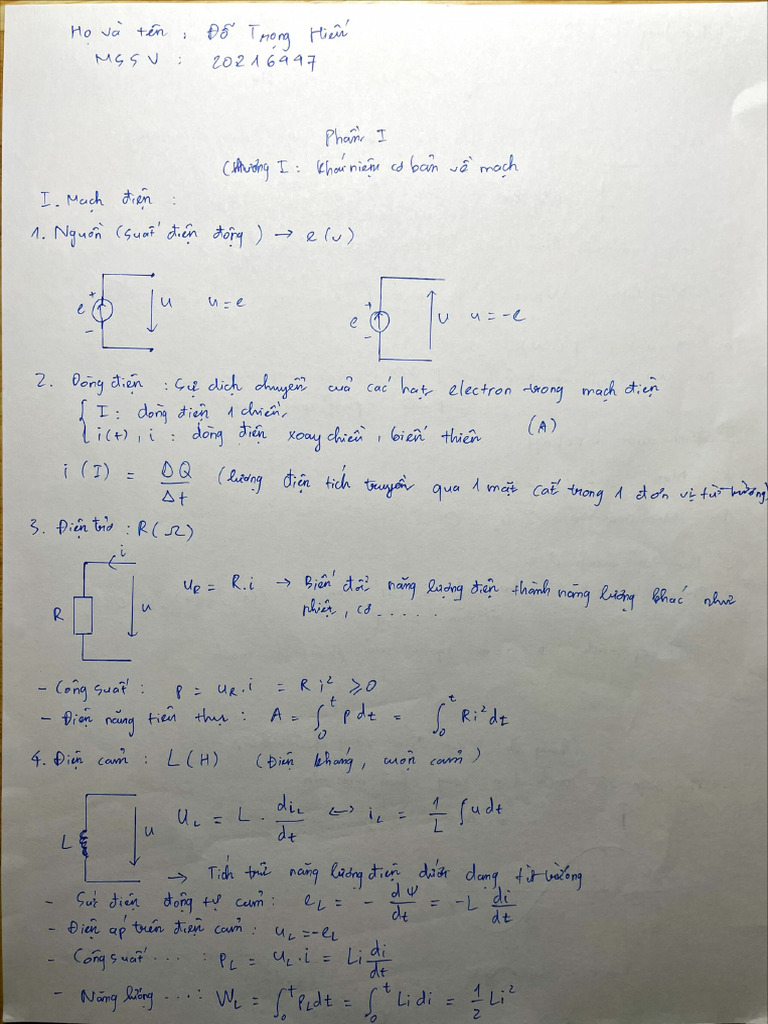 Họ và tên : Đỗ Trọng Hiến
MSSV : 20216997
Phần I
Chương I : Khái niệm cơ bản về mạch
I. Mạch điện :
1. Nguồn (suất điện động) → e(v)
e + - u u = e
e + - u u = -e
2. Dòng điện : Sự dịch chuyển của các hạt electron trong mạch điện
I : dòng điện 1 chiều
i(t), i : dòng điện xoay chiều, biến thiên (A)
i (I) = ΔQ/Δt (lượng điện tích truyền qua 1 mặt cắt trong 1 đơn vị
3. Điện trở : R(Ω)
R i u
u_R = R.i → Biến đổi năng lượng điện thành năng lượng khác như
nhiệt, cơ .....
- Công suất : p = u_R.i = R i² ⩾0
- Điện năng tiêu thụ : A = ∫₀ᵗ pdt = ∫₀ᵗ Ri²dt
4. Điện cảm : L(H) (Điện kháng, cuộn cảm)
L u
U_L = L . di_L/dt ↔ i_L = 1/L ∫udt
→ Tích trữ năng lượng điện dưới dạng từ trường
- Sức điện động tự cảm : e_L = - dΨ/dt = -L di/dt
- Điện áp trên điện cảm : u_L = -e_L
- Công suất ... : p_L = u_L.i = Li di/dt
- Năng lượng ... : W_L = ∫₀ᵗ p_L dt = ∫₀ᵗ Lidi = 1/2 Li²